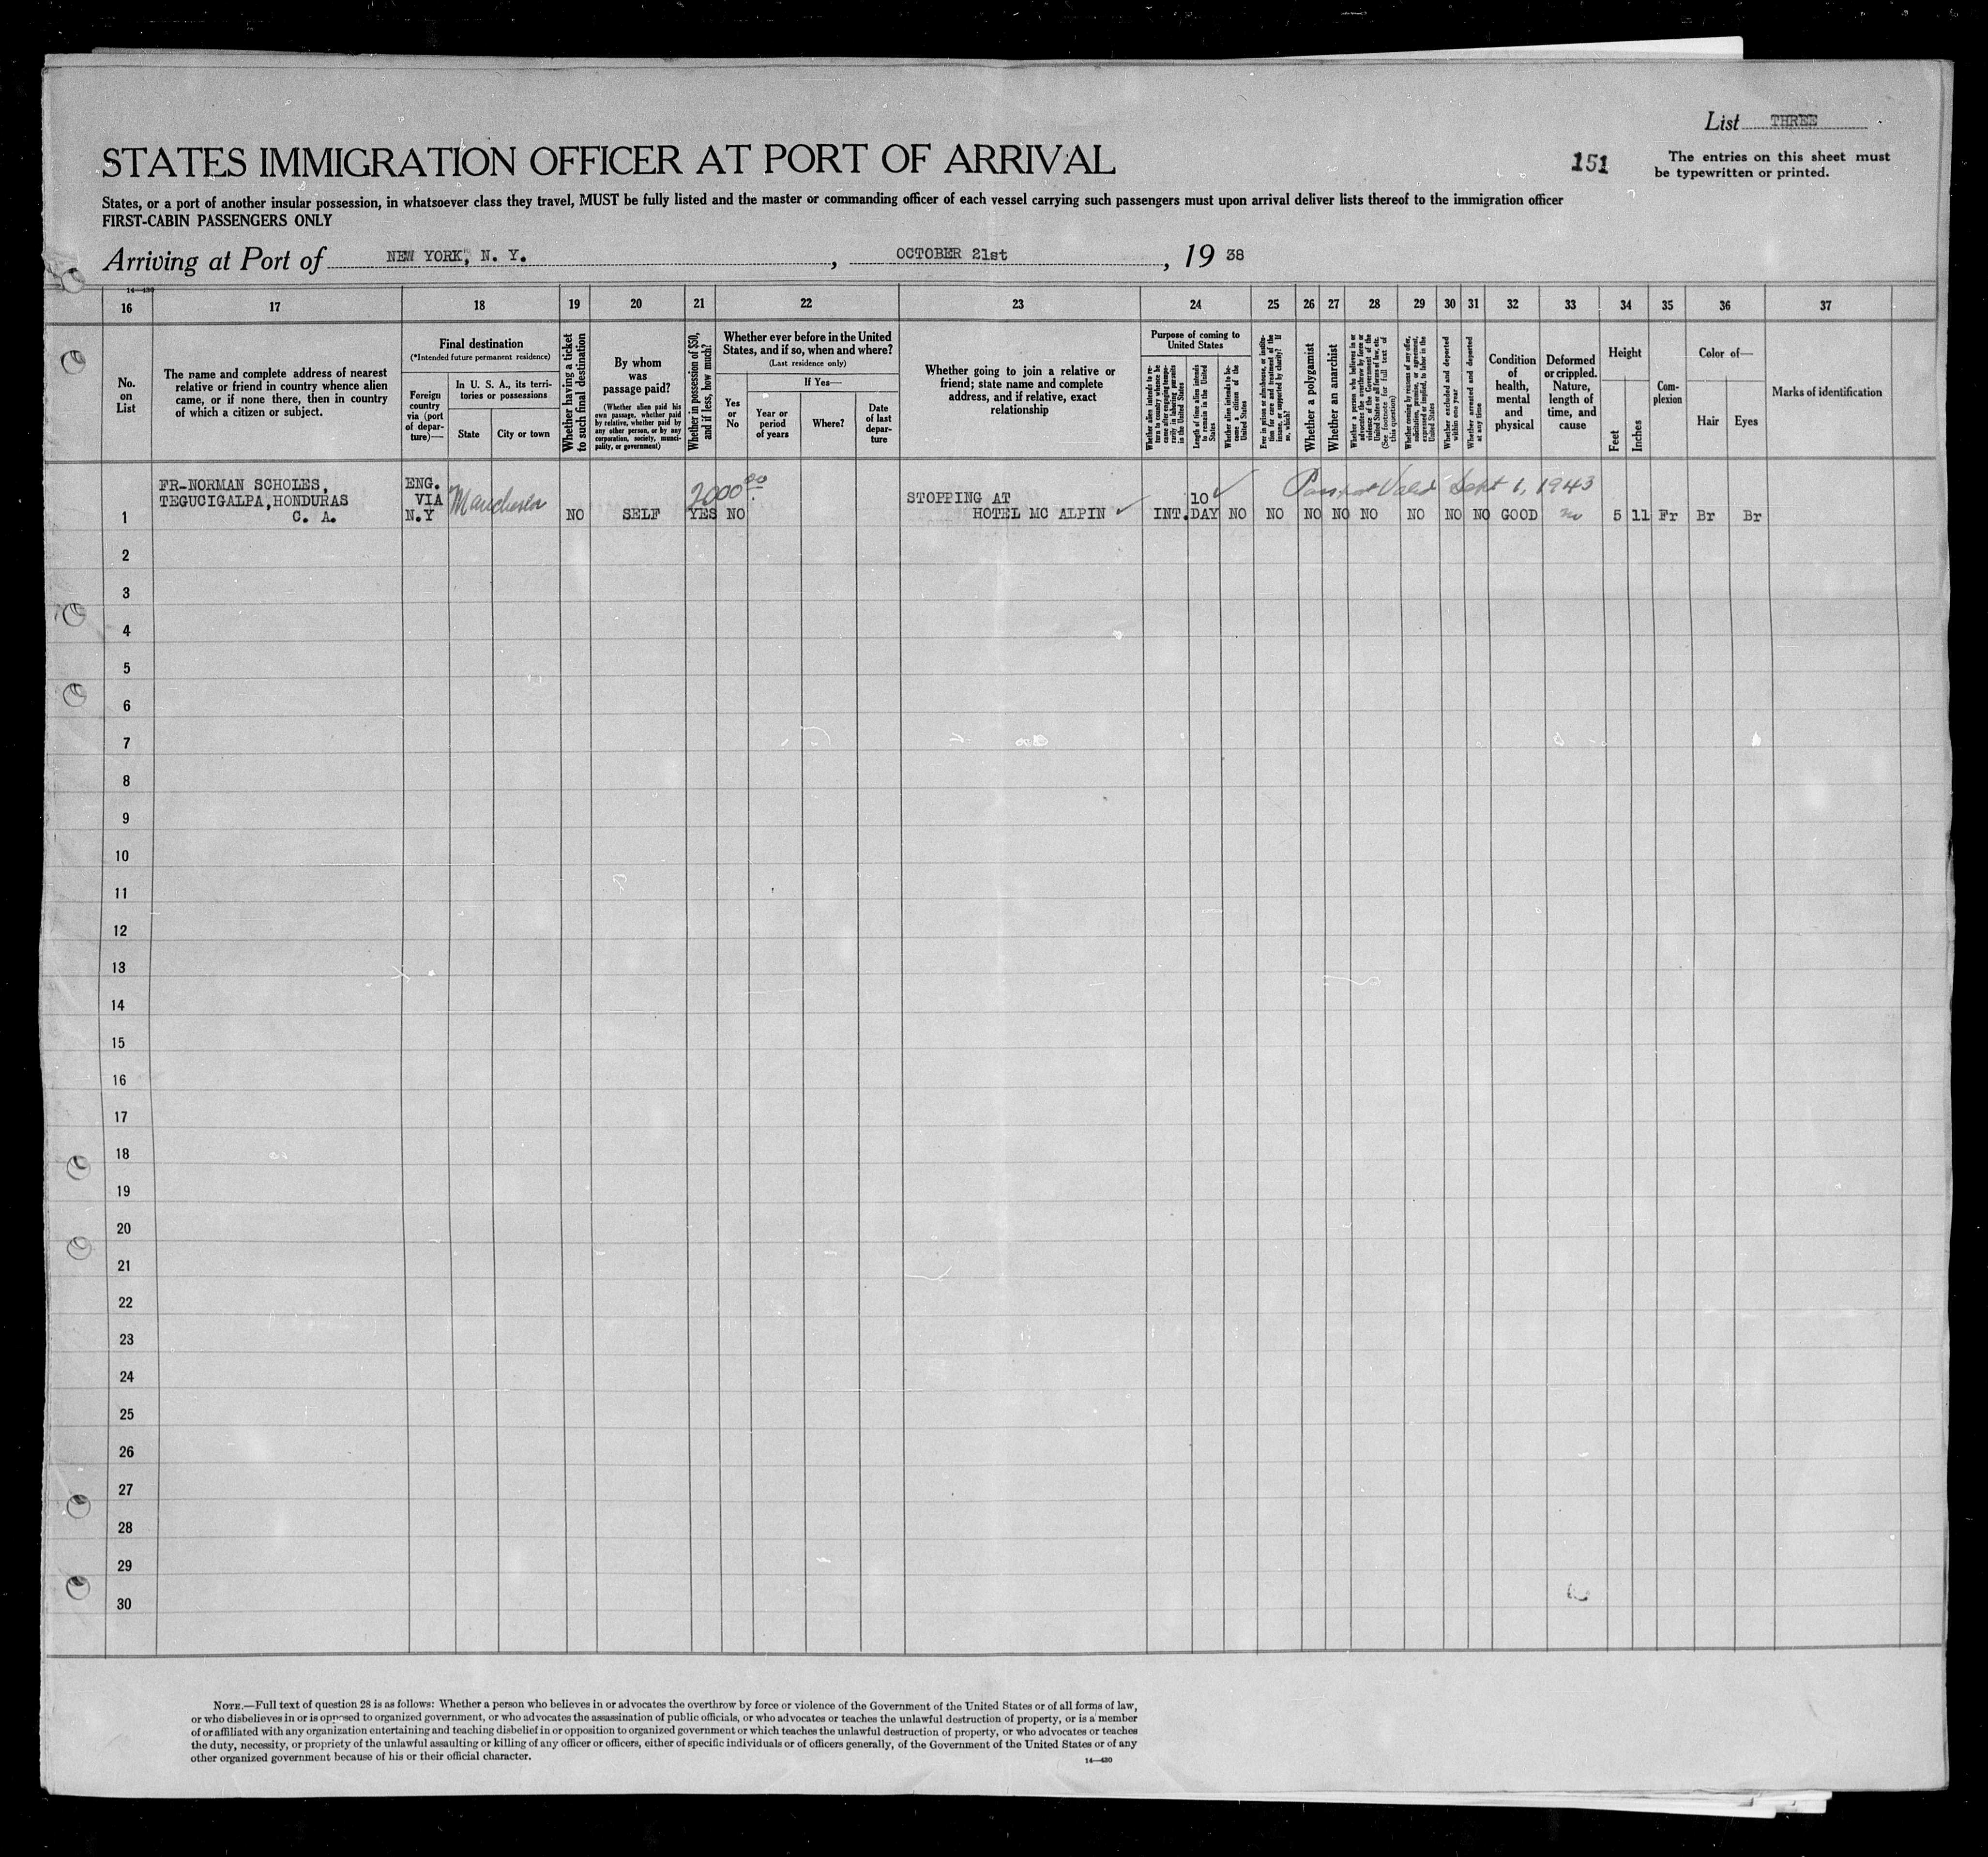 List THREE
STATES IMMIGRATION OFFICER AT PORT OF ARRIVAL
151
The entries on this sheet must
be typewritten or printed.
States, or a port of another insular possession, in whatsoever class they travel, MUST be fully listed and the master or commanding officer of each vessel carrying such passengers must upon arrival deliver lists thereof to the immigration officer
FIRST-CABIN PASSENGERS ONLY
Arriving at Port of NEW YORK, N. Y., OCTOBER 21st, 19 38
14—430
16 17 18 19 20 21 22 23 24 25 26 27 28 29 30 31 32 33 34 35 36 37
No.
on
List
The name and complete address of nearest
relative or friend in country whence alien
came, or if none there, then in country
of which a citizen or subject.
Final destination
(*Intended future permanent residence)
Foreign
country
via (port
of depar-
ture)—
In U. S. A., its terri-
tories or possessions
State
City or town
Whether having a ticket
to such final destination
By whom
was
passage paid?
(Whether alien paid his
own passage, whether paid
by relative, whether paid by
any other person, or by any
corporation, society, munici-
pality, or government)
Whether in possession of $50,
and if less, how much?
Whether ever before in the United
States, and if so, when and where?
(Last residence only)
Yes
or
No
If Yes—
Year or
period
of years
Where?
Date
of last
depar-
ture
Whether going to join a relative or
friend; state name and complete
address, and if relative, exact
relationship
Purpose of coming to
United States
Whether alien intends to re-
turn to country whence he
came after engaging tempo-
rarily in laboring pursuits
in the United States
Length of time alien intends
to remain in the United
States
Whether alien intends to be-
come a citizen of the
United States
Ever in prison or almshouse, or institu-
tion for care and treatment of the
insane, or supported by charity? If
so, which?
Whether a polygamist
Whether an anarchist
Whether a person who believes in or
advocates the overthrow by force or
violence of the Government of the
United States or all forms of law, etc.
(See footnote for full text of
this question)
Whether coming by reasons of any offer,
solicitation, promise, or agreement,
expressed or implied, to labor in the
United States
Whether excluded and deported
within one year
Whether arrested and deported
at any time
Condition
of
health,
mental
and
physical
Deformed
or crippled.
Nature,
length of
time, and
cause
Height
Feet
Inches
Com-
plexion
Color of—
Hair
Eyes
Marks of identification
FR-NORMAN SCHOLES,
TEGUCIGALPA,HONDURAS
C. A.
ENG.
VIA
N.Y
Manchester
2000.00
STOPPING AT
HOTEL MC ALPIN ✓
10 ✓
Passport Valid Sept 1, 1943
1 NO SELF YES NO INT. DAY NO NO NO NO NO NO NO NO GOOD no 5 11 Fr Br Br
2
3
4
5
6
7
8
9
10
11
12
13
14
15
16
17
18
19
20
21
22
23
24
25
26
27
28
29
30
NOTE.—Full text of question 28 is as follows: Whether a person who believes in or advocates the overthrow by force or violence of the Government of the United States or of all forms of law,
or who disbelieves in or is opposed to organized government, or who advocates the assassination of public officials, or who advocates or teaches the unlawful destruction of property, or is a member
of or affiliated with any organization entertaining and teaching disbelief in or opposition to organized government or which teaches the unlawful destruction of property, or who advocates or teaches
the duty, necessity, or propriety of the unlawful assaulting or killing of any officer or officers, either of specific individuals or of officers generally, of the Government of the United States or of any
other organized government because of his or their official character.
14—430